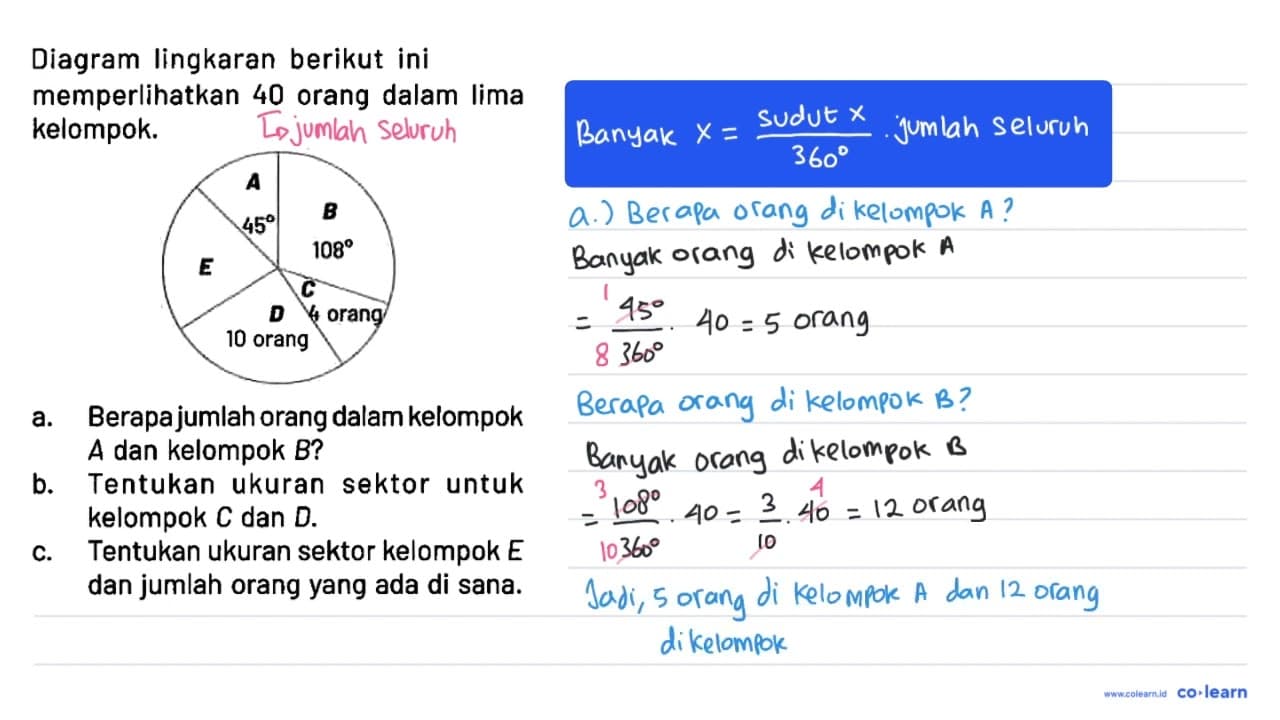 Diagram lingkaran berikut ini
memperlihatkan 40 orang dalam lima
kelompok.
jumlah seluruh
A
45°
B
108°
E
C
4 orang
D
10 orang
a. Berapa jumlah orang dalam kelompok
A dan kelompok B?
b. Tentukan ukuran sektor untuk
kelompok C dan D.
c. Tentukan ukuran sektor kelompok E
dan jumlah orang yang ada di sana.
Banyak x = sudut x / 360° . jumlah seluruh
a.) Berapa orang di kelompok A?
Banyak orang di kelompok A
1
= 45° / 360° . 40 = 5 orang
8
Berapa orang di kelompok B?
Banyak orang di kelompok B
3 4
= 108° / 360° . 40 = 3 / 10 . 40 = 12 orang
10
Jadi, 5 orang di kelompok A dan 12 orang
di kelompok
www.colearn.id co·learn